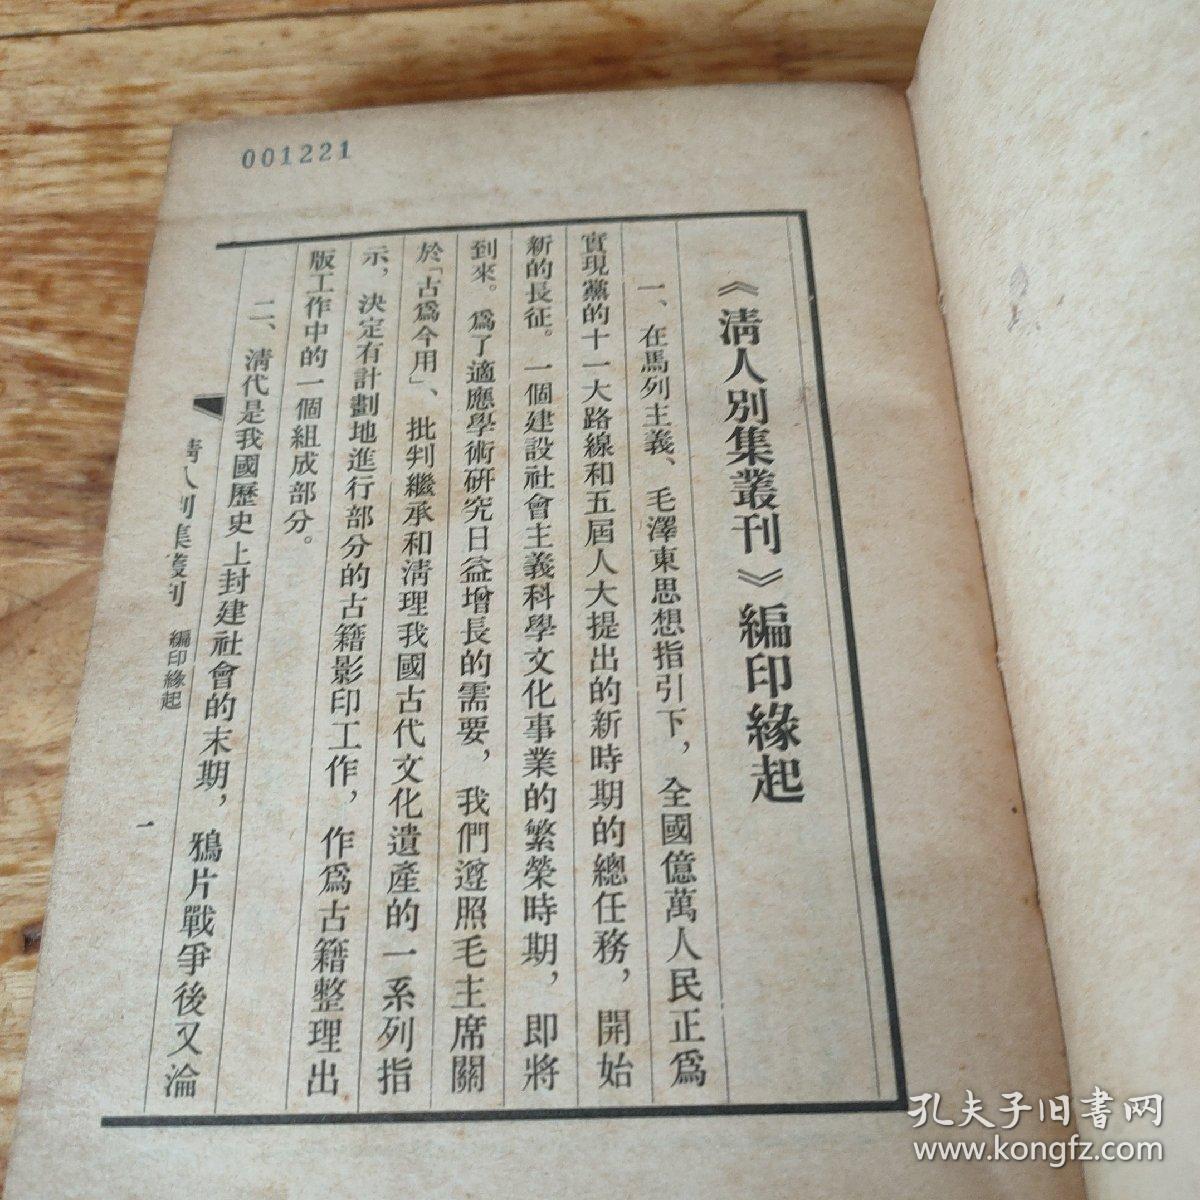 001221
《淸人別集叢刊》編印緣起
一、在馬列主義、毛澤東思想指引下，全國億萬人民正爲
實現黨的十一大路線和五屆人大提出的新時期的總任務，開始
新的長征。一個建設社會主義科學文化事業的繁榮時期，即將
到來。爲了適應學術研究日益增長的需要，我們遵照毛主席關
於「古爲今用」、批判繼承和淸理我國古代文化遺產的一系列指
示，決定有計劃地進行部分的古籍影印工作，作爲古籍整理出
版工作中的一個組成部分。
二、淸代是我國歷史上封建社會的末期，鴉片戰爭後又淪
淸人別集叢刊 編印緣起
一
孔夫子旧书网
www.kongfz.com